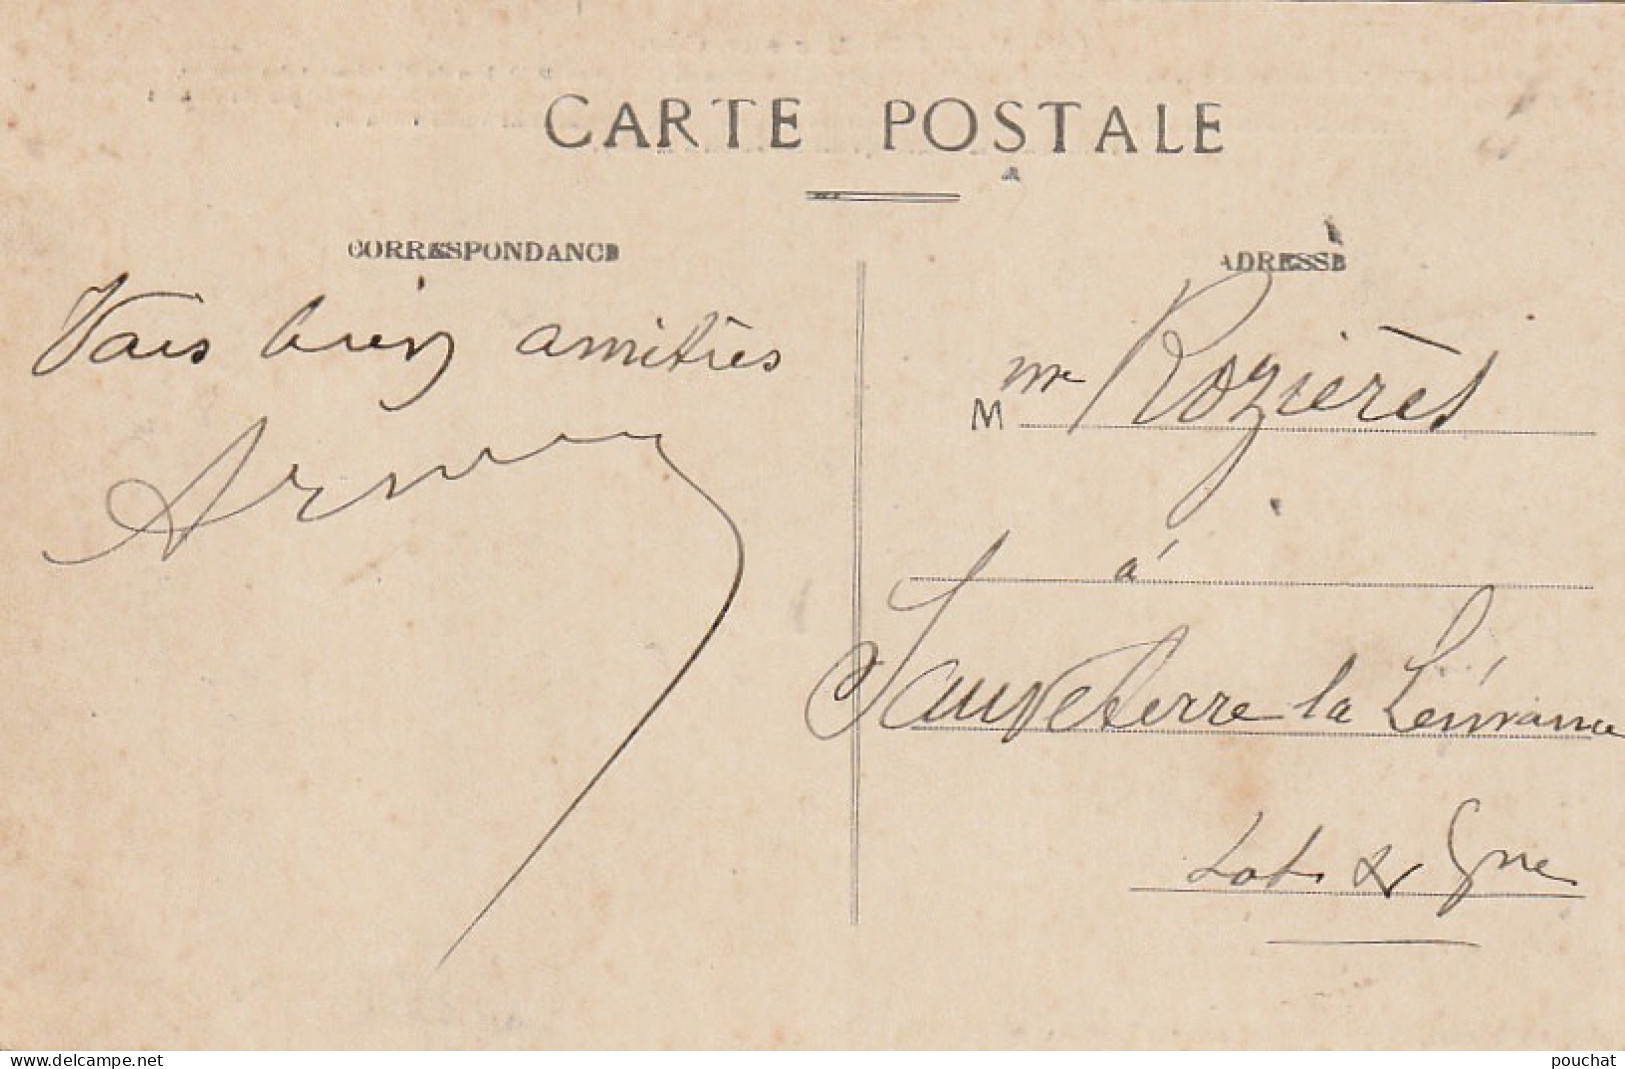 CARTE POSTALE
CORRESPONDANCE
Vais bien amitiés
ADRESSE
M me Rozières
à
Sauveterre la Lémance
Lot & Gne
www.delcampe.net
pouchat